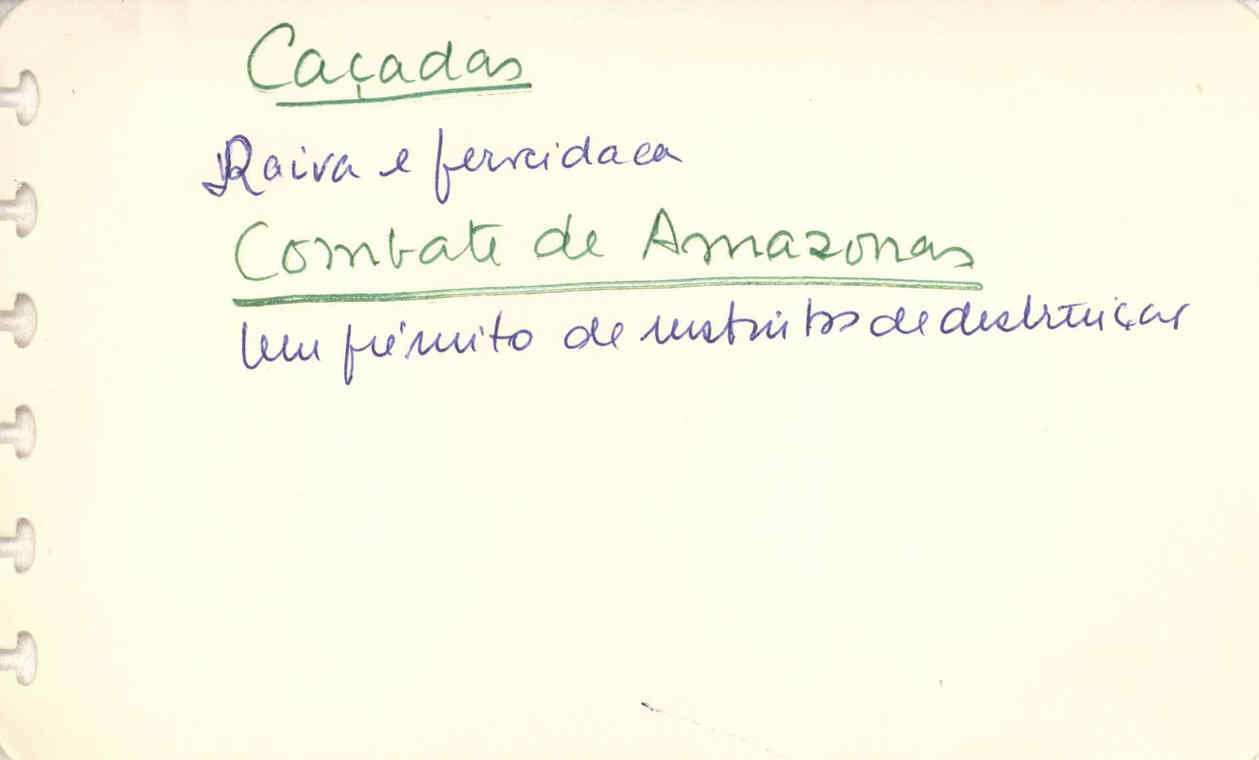 Caçadas
Raiva e ferocidade
Combate de Amazonas
Um frémito de instintos de destruição